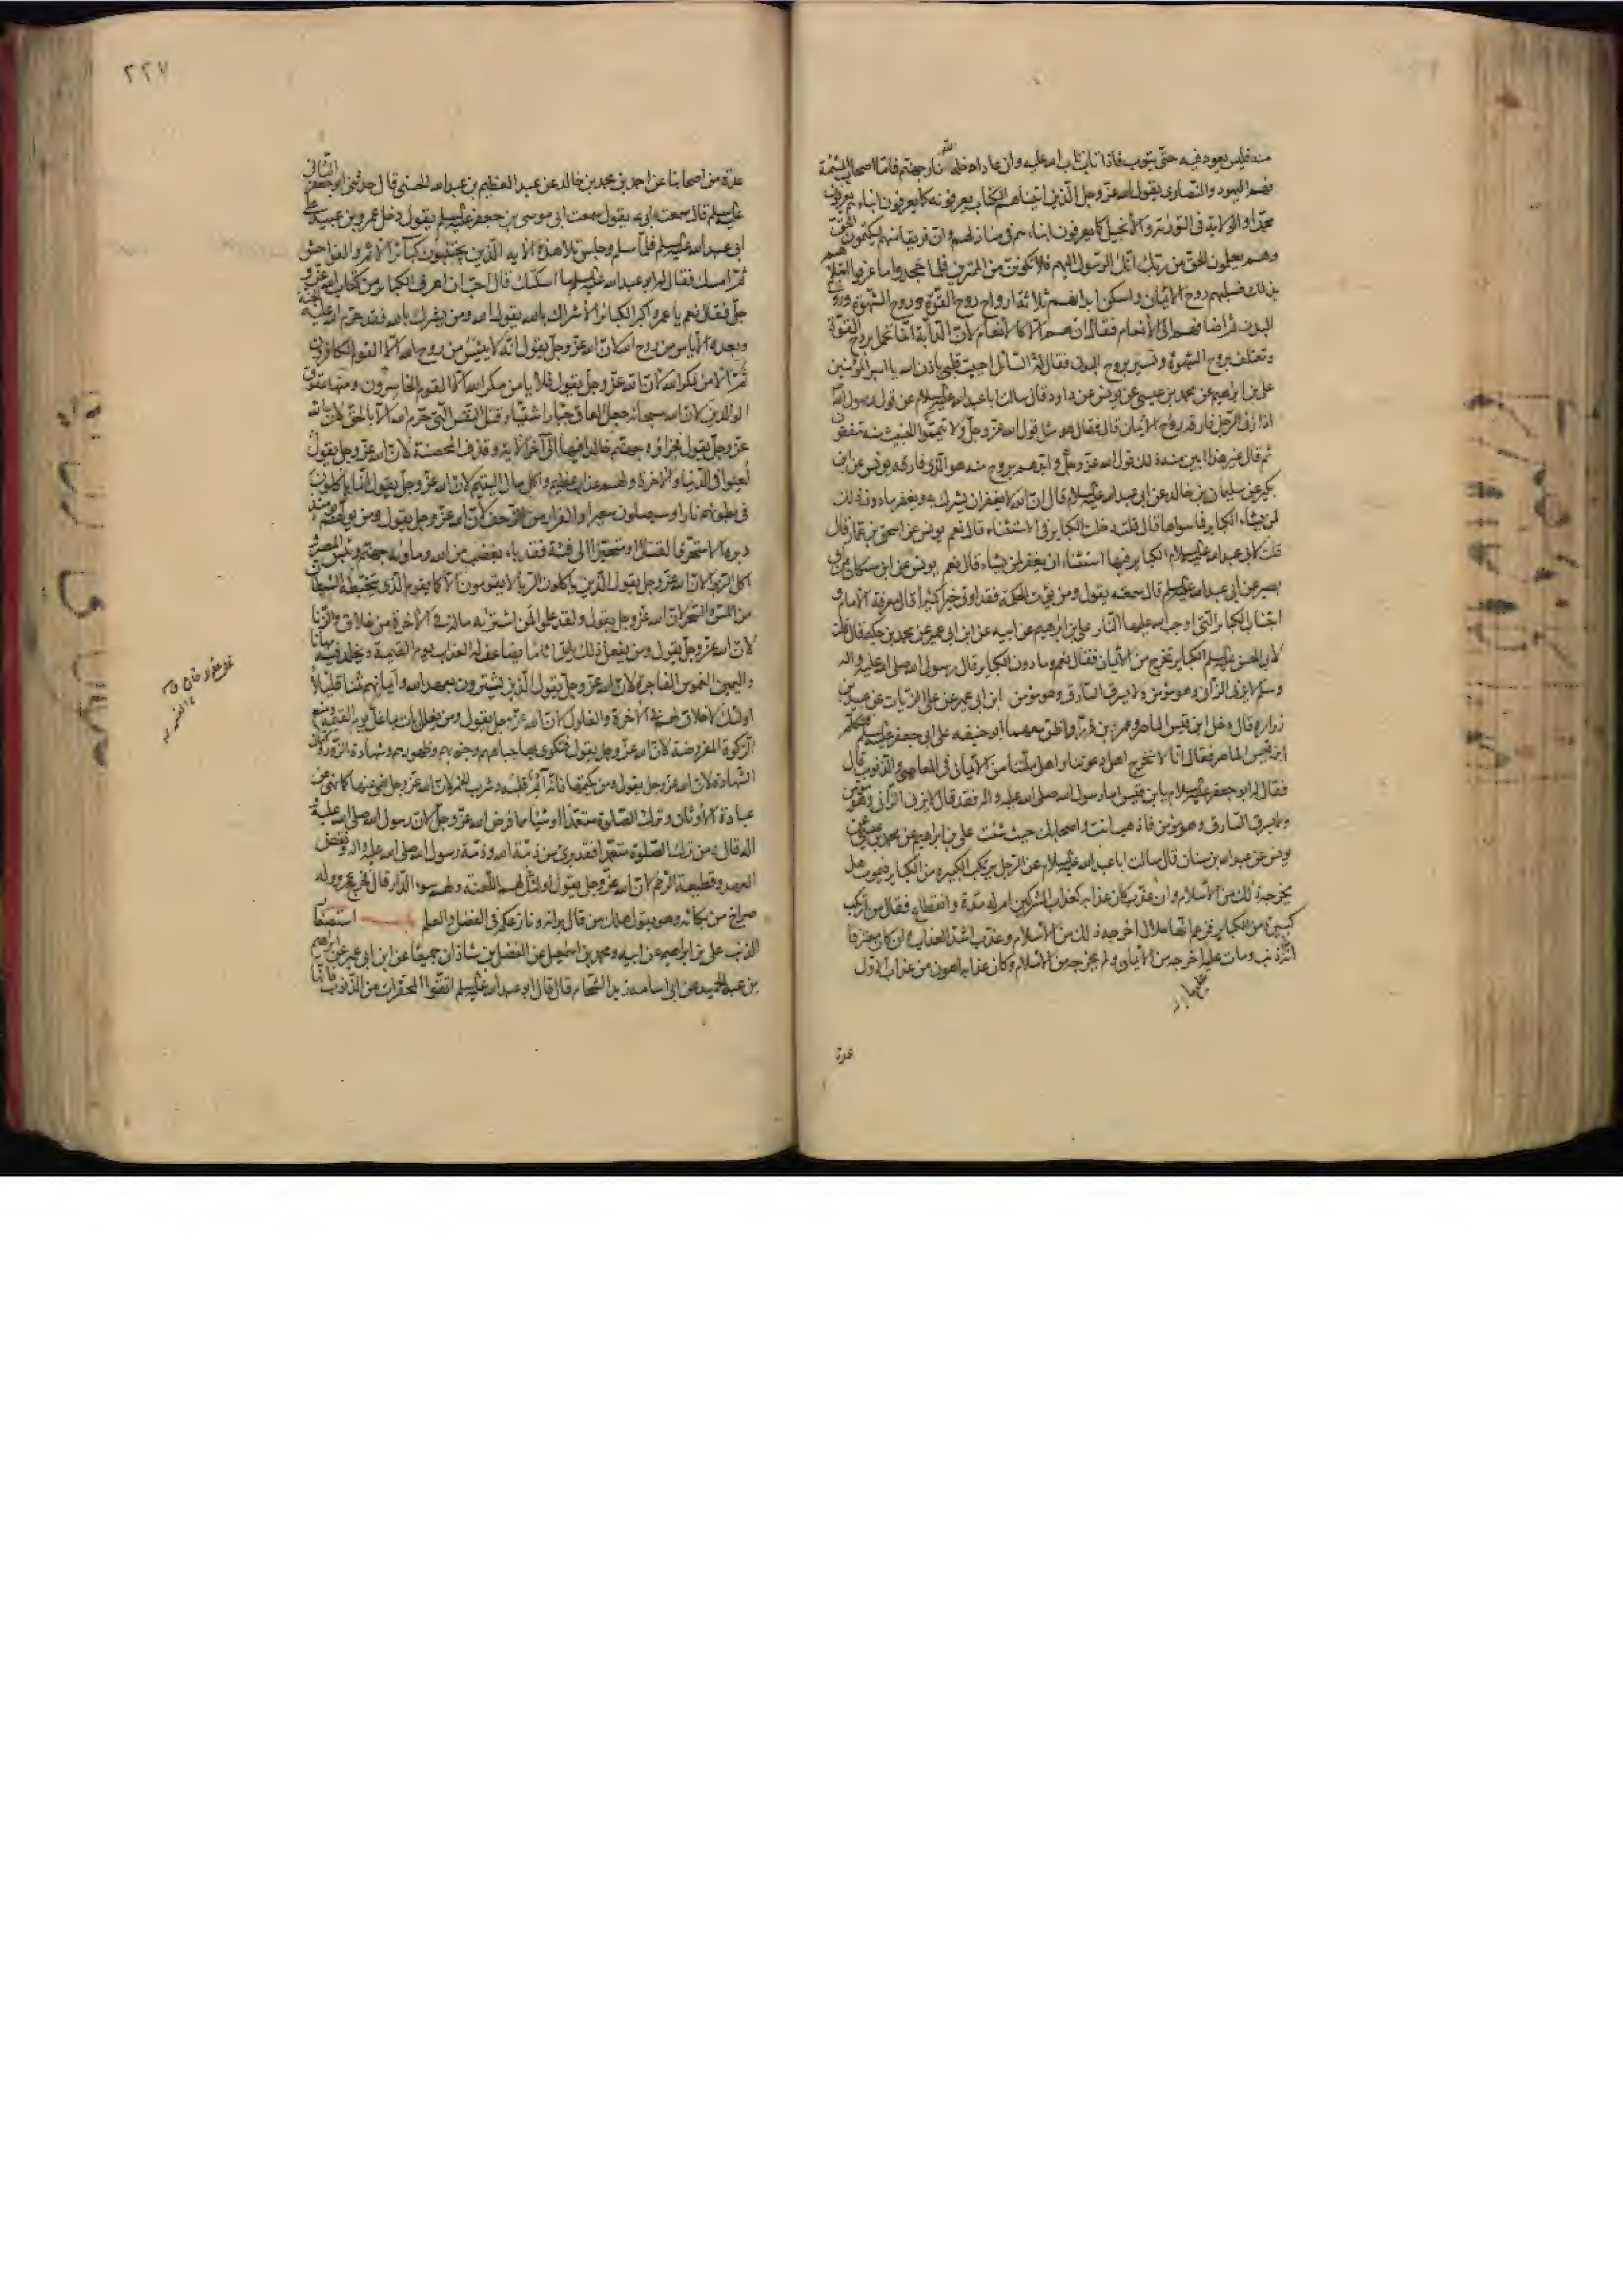 منه فليس يعود فيه حتى يتوب فاذا تاب تاب الله عليه وان عاد ادخله الله نار جهنم فاما اصحاب المشئمة
فهم اليهود والنصارى يقول الله عز وجل الذين اتيناهم الكتاب يعرفونه كما يعرفون ابناءهم يعرفون
محمدا والولاية فى التورية والانجيل كما يعرفون ابناءهم فى منازلهم وان فريقا منهم ليكتمون الحق
وهم يعلمون الحق من ربك انك الرسول اليهم فلا تكونن من الممترين فلما جحدوا ما عرفوا ابتلاهم
بذلك فسلبهم روح الايمان واسكن ابدانهم ثلاثة ارواح روح القوة وروح الشهوة وروح
البدن ثم اضافهم الى الانعام فقال ان هم الا كالانعام لان الدابة انما تحمل بروح القوة
وتعتلف بروح الشهوة وتسير بروح البدن فقال له السائل احييت قلبى باذن الله يا امير المؤمنين
على بن ابراهيم عن محمد بن عيسى عن يونس عن داود قال سالت ابا عبد الله عليه السلام عن قول رسول الله ص
اذا زنى الرجل فارقه روح الايمان قال فقال هو مثل قول الله عز وجل ولا تيمموا الخبيث منه تنفقون
ثم قال غير هذا ابين منه ذلك قول الله عز وجل وايدهم بروح منه هو الذى فارقه يونس عن ابن
بكير عن سليمان بن خالد عن ابى عبد الله عليه السلام قال ان الله لا يغفر ان يشرك به ويغفر ما دون ذلك
لمن يشاء الكباير فما سواها قال قلت دخلت الكباير فى الاستثناء قال نعم يونس عن اسحق بن عمار قال
قلت لابى عبد الله عليه السلام الكباير فيها استثناء ان يغفر لمن يشاء قال نعم يونس عن ابن مسكان عن ابى
بصير عن ابى عبد الله عليه السلم قال سمعته يقول ومن يؤت الحكمة فقد اوتى خيرا كثيرا قال معرفة الامام و
اجتناب الكبائر التى اوجب الله عليها النار على بن ابراهيم عن ابيه عن ابن ابى عمير عن محمد بن حكيم قال قلت
لابى الحسن عليه السلم الكباير تخرج من الايمان فقال نعم وما دون الكباير قال رسول الله صلى الله عليه واله
وسلم لا يزنى الزانى وهو مؤمن ولا يسرق السارق وهو مؤمن ابن ابى عمير عن على الزيات عن عبيد بن
زرارة قال دخل ابن قيس الماصر وعمرو بن ذر واظن معهما ابو حنيفه على ابى جعفر عليه السلم فتكلم
ابن قيس الماصر فقال انا لا نخرج اهل دعوتنا واهل ملتنا من الايمان فى المعاصى والذنوب قال
فقال له ابو جعفر عليه السلام يابن قيس اما رسول الله صلى الله عليه واله فقد قال لا يزنى الزانى وهو مؤمن
ولا يسرق السارق وهو مؤمن فاذهب انت واصحابك حيث شئت على بن ابراهيم عن محمد بن عيسى عن
يونس عن عبد الله بن سنان قال سالت ابا عبد الله عليه السلام عن الرجل يرتكب الكبيرة من الكباير فيموت هل
يخرجه ذلك من الاسلام وان عذب كان عذابه كعذاب المشركين ام له مدة وانقطاع فقال من ارتكب
كبيرة من الكباير فزعم انها حلال اخرجه ذلك من الاسلام وعذب اشد العذاب وان كان معترفا
انه اذنب ومات عليه اخرجه من الايمان ولم يخرجه من الاسلام وكان عذابه اهون من عذاب الاول
عدة
٢٢٧
عدة من اصحابنا عن احمد بن محمد بن خالد عن عبد العظيم بن عبد الله الحسنى قال حدثنى ابو جعفر الثانى
عليه السلم قال سمعت ابى يقول سمعت ابى موسى بن جعفر عليه السلم يقول دخل عمرو بن عبيد على
ابى عبد الله عليه السلم فلما سلم وجلس تلا هذه الايه الذين يجتنبون كبائر الاثم والفواحش
ثم امسك فقال له ابو عبد الله عليه السلم ما اسكتك قال احب ان اعرف الكباير من كتاب الله عز و
جل فقال نعم يا عمرو اكبر الكبائر الاشراك بالله يقول الله ومن يشرك بالله فقد حرم الله عليه الجنة
وبعده الاياس من روح الله لان الله عز وجل يقول انه لا ييئس من روح الله الا القوم الكافرون
ثم الامن لمكر الله لان الله عز وجل يقول فلا يامن مكر الله الا القوم الخاسرون ومنها عقوق
الوالدين لان الله سبحانه جعل العاق جبارا شقيا وقتل النفس التى حرم الله الا بالحق لان الله
عز وجل يقول فجزاؤه جهنم خالدا فيها الى آخر الاية وقذف المحصنة لان الله عز وجل يقول
لعنوا فى الدنيا والاخرة ولهم عذاب عظيم واكل مال اليتيم لان الله عز وجل يقول انما ياكلون
فى بطونهم نارا وسيصلون سعيرا والفرار من الزحف لان الله عز وجل يقول ومن يولهم يومئذ
دبره الا متحرفا لقتال او متحيزا الى فئة فقد باء بغضب من الله وماويه جهنم وبئس المصير و
اكل الربوا لان الله عز وجل يقول الذين ياكلون الربا لا يقومون الا كما يقوم الذى يتخبطه الشيطان
من المس والسحر لان الله عز وجل يقول ولقد علموا لمن اشتريه ما له فى الاخرة من خلاق والزنا
لان الله عز وجل يقول ومن يفعل ذلك يلق اثاما يضاعف له العذاب يوم القيمة ويخلد فيه مهانا
واليمين الغموس الفاجرة لان الله عز وجل يقول الذين يشترون بعهد الله وايمانهم ثمنا قليلا
اولئك لا خلاق لهم فى الاخرة والغلول لان الله عز وجل يقول ومن يغلل يات بما غل يوم القيمه ومنع
الزكوة المفروضة لان الله عز وجل يقول فتكوى بها جباههم وجنوبهم وظهورهم وشهادة الزور وكتمان
الشهادة لان الله عز وجل يقول ومن يكتمها فانه آثم قلبه وشرب الخمر لان الله عز وجل نهى عنها كما نهى عن
عبادة الاوثان وترك الصلوة متعمدا او شيئا مما فرض الله عز وجل لان رسول الله صلى الله عليه و
اله قال ومن ترك الصلوة متعمدا فقد برئ من ذمة الله وذمة رسول الله صلى الله عليه واله ونقض
العهد وقطيعة الرحم لان الله عز وجل يقول اولئك لهم اللعنة ولهم سوء الدار قال فخرج عمرو وله
صراخ من بكائه وهو يقول هلك من قال برايه ونازعكم فى الفضل والعلم باب استصغار
الذنب على بن ابراهيم عن ابيه ومحمد بن اسمعيل عن الفضل بن شاذان جميعا عن ابن ابى عمير عن ابراهيم
بن عبد الحميد عن ابى اسامه زيد الشحام قال قال ابو عبد الله عليه السلم اتقوا المحقرات من الذنوب فانها